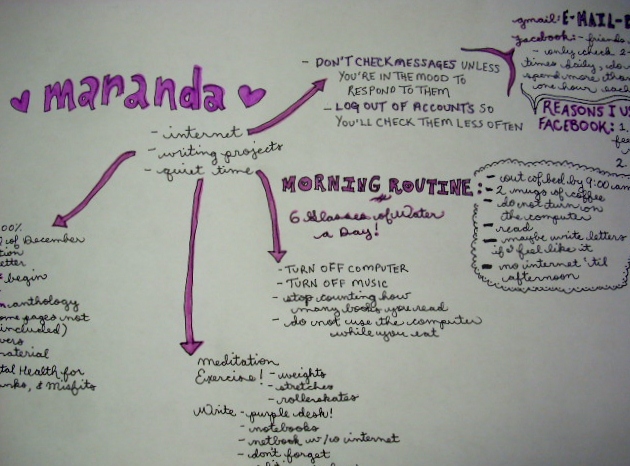 maranda
- internet
- writing projects
- quiet time
- DON'T CHECK MESSAGES UNLESS
YOU'RE IN THE MOOD TO
RESPOND TO THEM
- LOG OUT OF ACCOUNTS SO
YOU'LL CHECK THEM LESS OFTEN
gmail: E-MAIL-B
facebook: - friends
- only check 2-
times daily, do
spend more than
one hour each
REASONS I U
FACEBOOK: 1.
fee
2.
MORNING ROUTINE:
- out of bed by 9:00 am
- 2 mugs of coffee
- do not turn on
the computer
- read
- maybe write letters
if i feel like it
- no internet 'til
afternoon
6 Glasses of Water
a Day!
- TURN OFF COMPUTER
- TURN OFF MUSIC
- stop counting how
many books you read
- do not use the computer
while you eat
00%
of December
tion
etter
begin
anthology
me pages not
included)
vers
material
tal Health for
unks, & Misfits
meditation
Exercise! - weights
- stretches
- rollerskates
Write - purple desk!
- notebooks
- netbook w/o internet
- don't forget